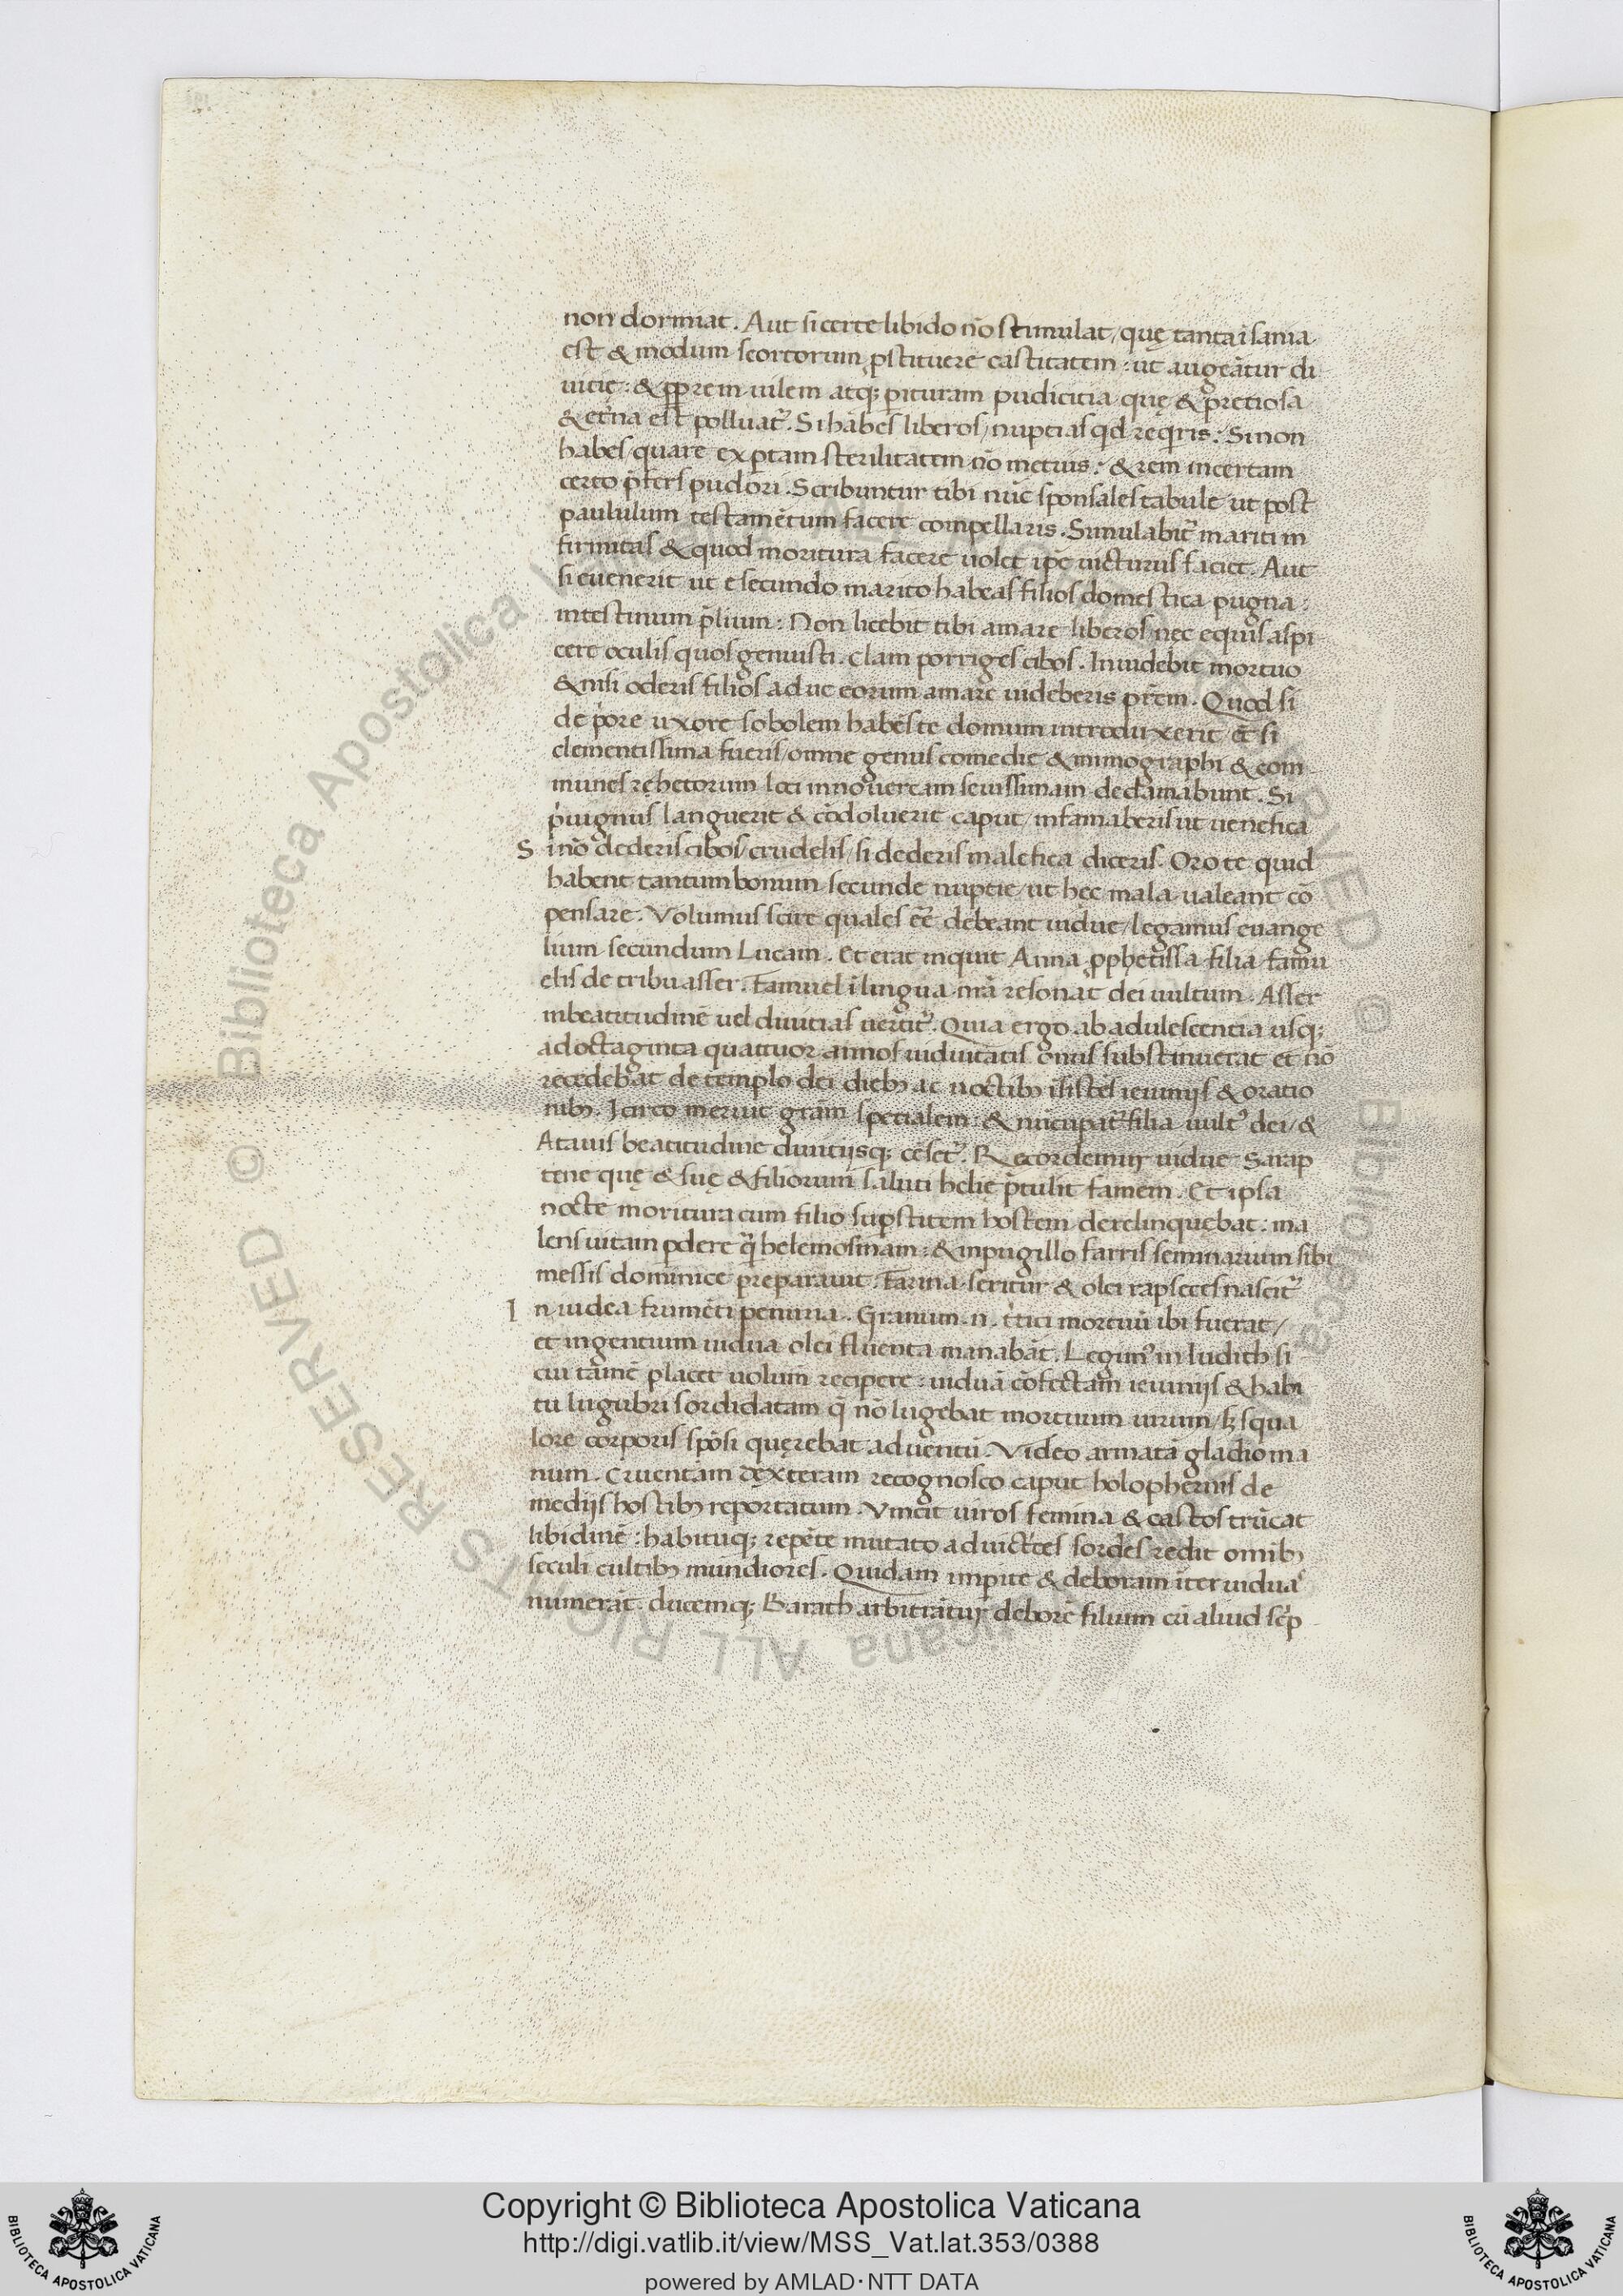 non dormiat. Aut si certe libido nō stimulat, quę tanta īsania
est & modum scortorum ꝓstituere castitatem: ut augeātur di
uitię: & ꝓpt̄ rem uilem atq; ꝑituram pudicitia quę & pretiosa
& et̄na est polluat᷑. Si habes liberos, nuptias qd reqͥris: Si non
habes, quare exꝑtam sterilitatem nō metuis: & rem incertam
certo p̄fers pudori. Scribuntur tibi nūc sponsales tabulę ut post
paululum testamētum facere compellaris. Simulabit᷑ mariti in
firmitas & quod moritura facere uolet ip̄e uicturus faciet. Aut
si euenerit ut e secundo marito habeas filios domestica pugna:
intestinum p̄lium: Non licebit tibi amare liberos, nec equis aspi
cere oculis quos genuisti. Clam porriges cibos. Inuidebit mortuo
& nisi oderis filios aduc eorum amare uideberis pr̄em. Quod si
de pͥore uxore sobolem habēs te domum introduxerit, et̄ si
clementissima fueris, omne genus comedie & mimographi & com
munes rehetorum loci in nouercam seuissimam declamabunt. Si
pͥuignus languerit & cōdoluerit caput, infamaberis ut uenefica
S i nō dederis cibos, crudelis, si dederis malefica diceris. Oro te quid
habent tantum bonum secunde nuptie, ut hęc mala ualeant cō
pensare. Volumus scire quales ēē debeant uidue, legamus euange
lium secundum Lucam. Et erat inquit Anna ꝓphetissa filia famu
elis de tribu asser. Famuel ī lingua nr̄a resonat dei uultum. Asser
in beatitudinē uel diuitias uertit᷑. Quia ergo ab adulescentia usq;
ad octaginta quattuor annos uiduitatis onus substinuerat et nō
recedebat de templo dei dieb; ac noctib; īsistēs ieiunijs & oratio
nib;. Icirco meruit grām spetialem: & nūcupat᷑ filia uultꝰ dei, &
Atauis beatitudine diuitijsq; cēset᷑. Recordemur uidue Sarap
tene quę & suę & filiorum saluti helię p̄tulit famem. Et ipsa
nocte moritura cum filio suꝑstitem hostem derelinquebat: ma
lens uitam ꝑdere q̄ helemosinam: & in pugillo farris seminarium sibi
messis dominice preparauit. Farina seritur & olei rapseces nascit᷑
I n iudea frumēti penuria. Granum .n. tͥtici mortuū ibi fuerat,
et in gentium uidua olei fluenta manabāt. Legimꝰ in Iudith si
cui tamē placet uolum̄ recipere: uiduā cōfectam ieiunijs & habi
tu lugubri sordidatam q̄ nō lugebat mortuum uirum, sꝫ squa
lore corporis spōsi querebat aduentū. Video armatā gladio ma
num. Cruentam dexteram recognosco caput holophernis de
medijs hostib; reportatum. Vincit uiros femina & castos trūcat
libidinē: habituq; repēte mutato ad uict͛ces sordes redit omib;
seculi cultib; mundiores. Quidam imꝑite & deboram īter uiduas
numerāt. ducemq; Barach arbitrātur deborē filium cū aliud sc͛p
Copyright © Biblioteca Apostolica Vaticana
http://digi.vatlib.it/view/MSS_Vat.lat.353/0388
powered by AMLAD·NTT DATA